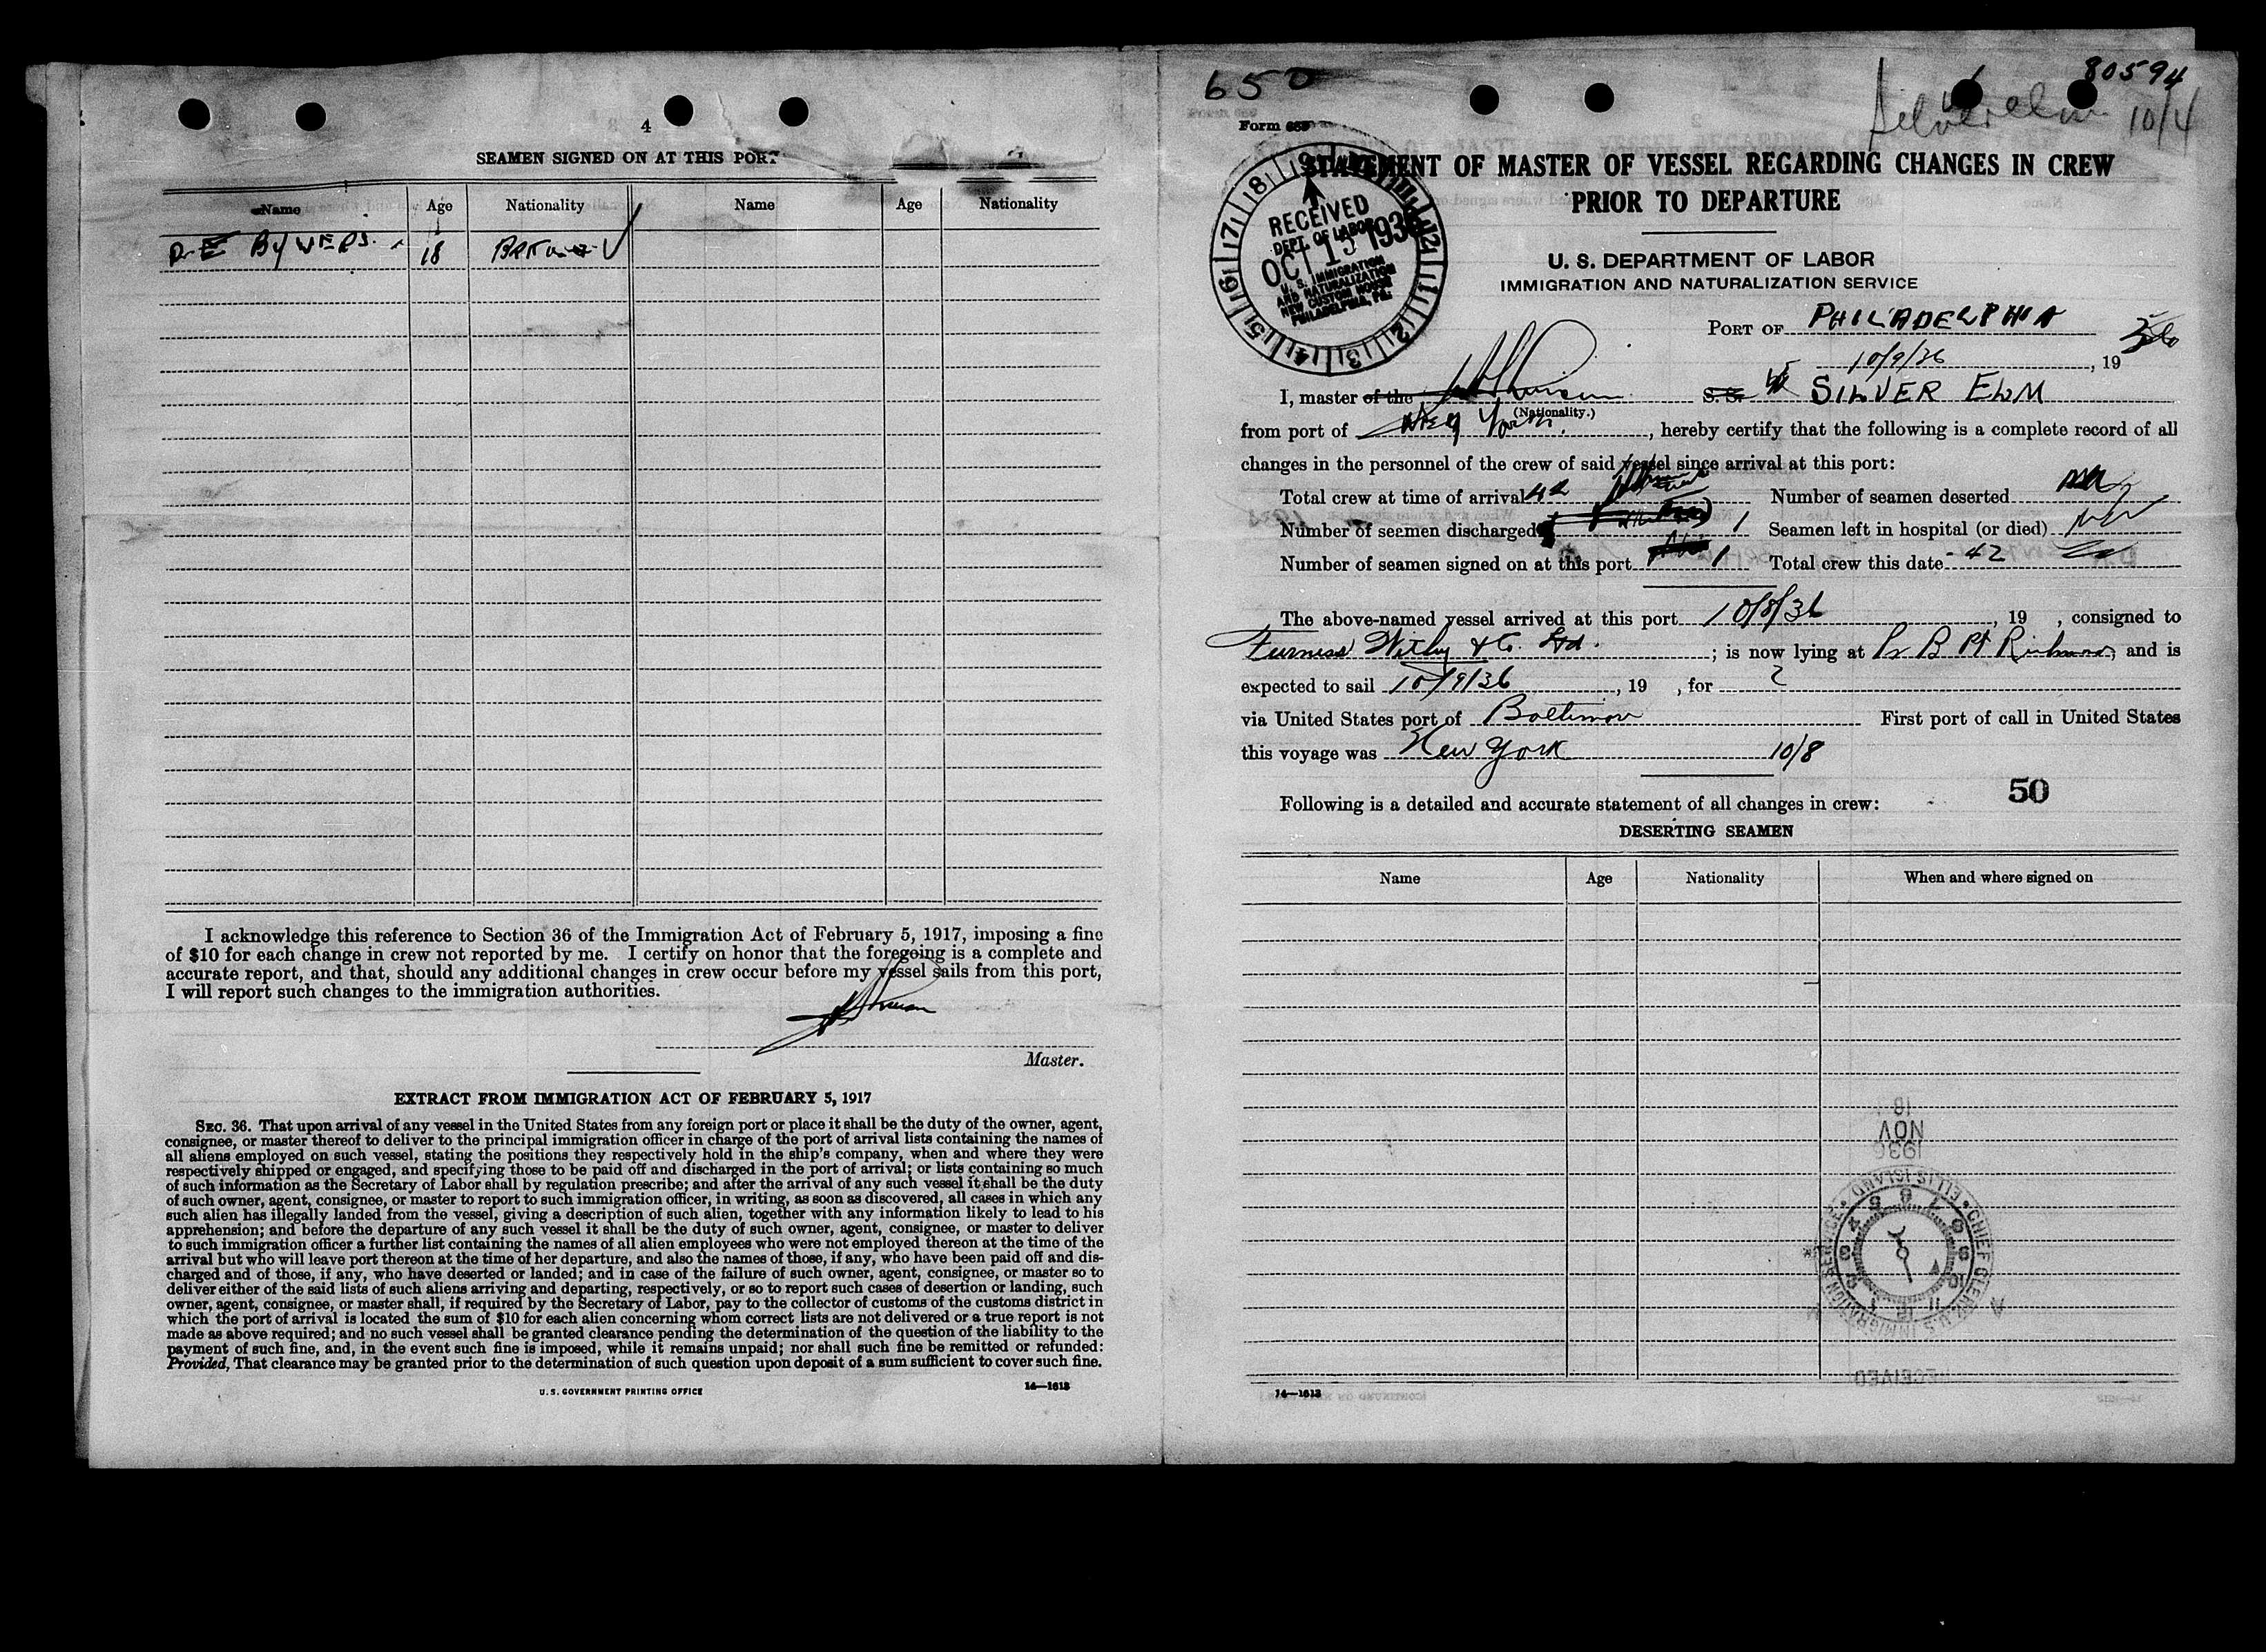 4
SEAMEN SIGNED ON AT THIS PORT
Name Age Nationality Name Age Nationality
18
I acknowledge this reference to Section 36 of the Immigration Act of February 5, 1917, imposing a fine
of $10 for each change in crew not reported by me. I certify on honor that the foregoing is a complete and
accurate report, and that, should any additional changes in crew occur before my vessel sails from this port,
I will report such changes to the immigration authorities.
Master.
EXTRACT FROM IMMIGRATION ACT OF FEBRUARY 5, 1917
SEC. 36. That upon arrival of any vessel in the United States from any foreign port or place it shall be the duty of the owner, agent,
consignee, or master thereof to deliver to the principal immigration officer in charge of the port of arrival lists containing the names of
all aliens employed on such vessel, stating the positions they respectively hold in the ship's company, when and where they were
respectively shipped or engaged, and specifying those to be paid off and discharged in the port of arrival; or lists containing so much
of such information as the Secretary of Labor shall by regulation prescribe; and after the arrival of any such vessel it shall be the duty
of such owner, agent, consignee, or master to report to such immigration officer, in writing, as soon as discovered, all cases in which any
such alien has illegally landed from the vessel, giving a description of such alien, together with any information likely to lead to his
apprehension; and before the departure of any such vessel it shall be the duty of such owner, agent, consignee, or master to deliver
to such immigration officer a further list containing the names of all alien employees who were not employed thereon at the time of the
arrival but who will leave port thereon at the time of her departure, and also the names of those, if any, who have been paid off and dis-
charged and of those, if any, who have deserted or landed; and in case of the failure of such owner, agent, consignee, or master so to
deliver either of the said lists of such aliens arriving and departing, respectively, or so to report such cases of desertion or landing, such
owner, agent, consignee, or master shall, if required by the Secretary of Labor, pay to the collector of customs of the customs district in
which the port of arrival is located the sum of $10 for each alien concerning whom correct lists are not delivered or a true report is not
made as above required; and no such vessel shall be granted clearance pending the determination of the question of the liability to the
payment of such fine, and, in the event such fine is imposed, while it remains unpaid; nor shall such fine be remitted or refunded:
Provided, That clearance may be granted prior to the determination of such question upon deposit of a sum sufficient to cover such fine.
U. S. GOVERNMENT PRINTING OFFICE 14—1613
650 80594
Silverelm 10/4
Form
STATEMENT OF MASTER OF VESSEL REGARDING CHANGES IN CREW
PRIOR TO DEPARTURE
RECEIVED
DEPT. OF LABOR
OCT 1936
U. S. IMMIGRATION
AND NATURALIZATION
NEW CUSTOM HOUSE
PHILADELPHIA, PA.
U. S. DEPARTMENT OF LABOR
IMMIGRATION AND NATURALIZATION SERVICE
PORT OF PHILADELPHIA
10/9/36, 19 36
I, master of the S. S. SILVER ELM
(Nationality.)
from port of New York, hereby certify that the following is a complete record of all
changes in the personnel of the crew of said vessel since arrival at this port:
Total crew at time of arrival 42 Number of seamen deserted
Number of seamen discharged 1 Seamen left in hospital (or died)
Number of seamen signed on at this port 1 Total crew this date 42
The above-named vessel arrived at this port 10/8/36, 19 , consigned to
Furness Withy & Co. Ltd.; is now lying at Richmond, and is
expected to sail 10/9/36, 19 , for ?
via United States port of Baltimore First port of call in United States
this voyage was New York 10/8
50
Following is a detailed and accurate statement of all changes in crew:
DESERTING SEAMEN
Name Age Nationality When and where signed on
14—1613